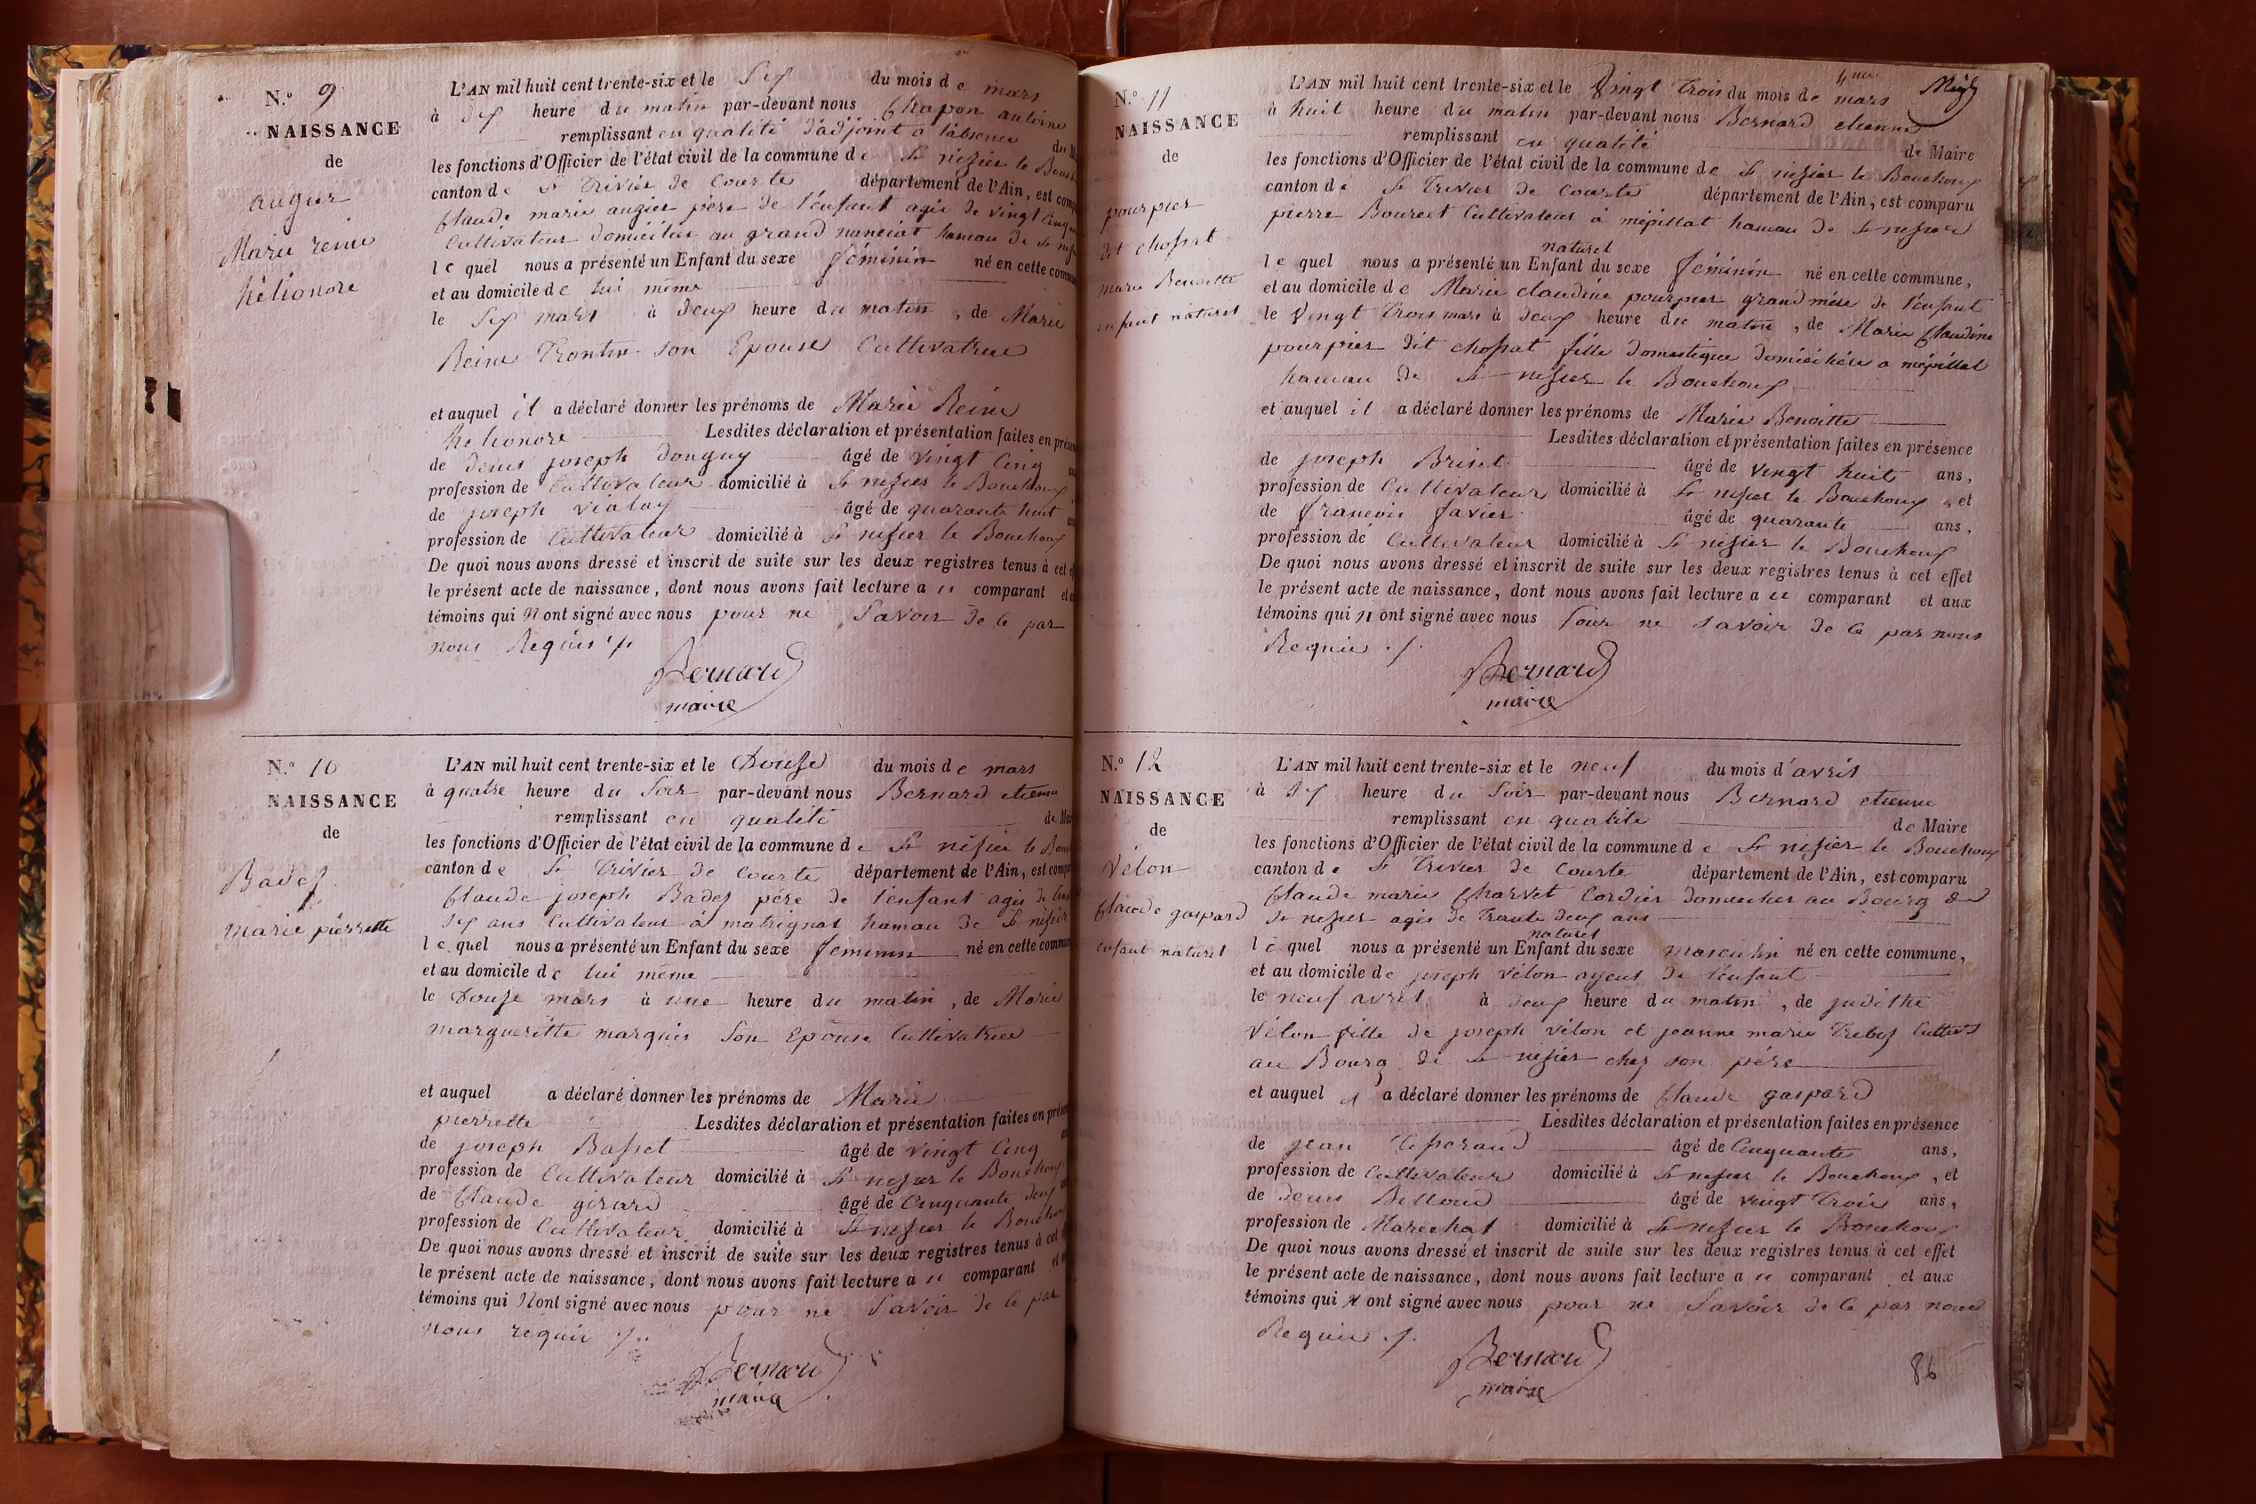 N.o 9
NAISSANCE
de
augier
Marie reine
héliònore
L'AN mil huit cent trente-six et le Six du mois de mars
à Dix heure du matin par-devant nous Chapon antoine
remplissant en qualité d'adjoint a l'absence du
les fonctions d'Officier de l'état civil de la commune de St nizier le
canton de St Trivier de Courte département de l'Ain, est
Claude marie augier père de l'enfant agée de vingt Cinq
Cultivateur domicilié au grand nanciat hameau de St
le quel nous a présenté un Enfant du sexe féminin né en cette
et au domicile de lui même
le Six mars à Deux heure du matin, de Marie
Reine Trontin son Epouse Cultivatrice
et auquel il a déclaré donner les prénoms de Marie Reine
helionore Lesdites déclaration et présentation faites en
de Denis joseph Donguy âgé de vingt Cinq
profession de Cultivateur domicilié à St nizier le Bouchoux
de joseph vialuy âgé de quarante huit
profession de Cultivateur domicilié à St nizier le Bouchoux
De quoi nous avons dressé et inscrit de suite sur les deux registres tenus à cet
le présent acte de naissance, dont nous avons fait lecture a u comparant
témoins qui N ont signé avec nous pour ne Savoir de ce par
nous Requis ./.
Bernard
maire
N.o 10
NAISSANCE
de
Badez
Marie pierrette
L'AN mil huit cent trente-six et le Douze du mois de mars
à quatre heure du Soir par-devant nous Bernard etienne
remplissant en qualité de
les fonctions d'Officier de l'état civil de la commune de St nizier le
canton de St Trivier de Courte département de l'Ain, est
Claude joseph Badez père de l'enfant agée de
Six ans Cultivateur à matrignat hameau de St nizier
le quel nous a présenté un Enfant du sexe feminin né en cette
et au domicile de lui même
le Douze mars à une heure du matin, de Marie
margueritte marquis Son Epouse Cultivatrice
et auquel a déclaré donner les prénoms de Marie
pierrette Lesdites déclaration et présentation faites en
de joseph Basset âgé de vingt Cinq
profession de Cultivateur domicilié à St nizier le Bouchoux
de Claude girard âgé de Cinquante deux
profession de Cultivateur domicilié à St nizier le Bouchoux
De quoi nous avons dressé et inscrit de suite sur les deux registres tenus à cet
le présent acte de naissance, dont nous avons fait lecture a u comparant
témoins qui N ont signé avec nous pour ne Savoir de ce par
nous requis ./.
Bernard
maire
N.o 11
NAISSANCE
de
pourpier
dit chossat
marie Benoitte
enfant naturel
L'AN mil huit cent trente-six et le Vingt Trois du mois de mars
à huit heure du matin par-devant nous Bernard etienne
remplissant en qualité de Maire
les fonctions d'Officier de l'état civil de la commune de St nizier le Bouchoux
canton de St Trivier de Courte département de l'Ain, est comparu
pierre Bouret Cultivateur à mépillat hameau de St nizier
naturel
le quel nous a présenté un Enfant du sexe féminin né en cette commune,
et au domicile de Marie claudine pourpier grand mère de l'enfant
le Vingt Trois mars à Deux heure du matin, de Marie Claudine
pourpier dit chossat fille domestique domiciliée a mépillat
hameau de St nizier le Bouchoux
et auquel il a déclaré donner les prénoms de Marie Benoitte
Lesdites déclaration et présentation faites en présence
de joseph Briset âgé de vingt huit ans,
profession de Cultivateur domicilié à St nizier le Bouchoux, et
de francois favier âgé de quarante ans,
profession de Cultivateur domicilié à St nizier le Bouchoux
De quoi nous avons dressé et inscrit de suite sur les deux registres tenus à cet effet
le présent acte de naissance, dont nous avons fait lecture a u comparant et aux
témoins qui N ont signé avec nous pour ne savoir de ce par nous
Requis ./.
Bernard
maire
N.o 12
NAISSANCE
de
Vélon
Claude gaspard
enfant naturel
L'AN mil huit cent trente-six et le neuf du mois d'avril
à Six heure du Soir par-devant nous Bernard etienne
remplissant en qualité de Maire
les fonctions d'Officier de l'état civil de la commune de St nizier le Bouchoux
canton de St Trivier de Courte département de l'Ain, est comparu
Claude marie Charvet Cordier domicilié au Bourg de
St nizier agée de Trante deux ans
naturel
le quel nous a présenté un Enfant du sexe masculin né en cette commune,
et au domicile de joseph vélon ayeul de l'enfant
le neuf avril à deux heure du matin, de judithe
Vélon fille de joseph vélon et jeanne marie Treboz
au Bourg de St nizier chez son père
et auquel il a déclaré donner les prénoms de Claude gaspard
Lesdites déclaration et présentation faites en présence
de jean âgé de Cinquante ans,
profession de Cultivateur domicilié à St nizier le Bouchoux, et
de Denis Billoud âgé de vingt Trois ans,
profession de Marechal domicilié à St nizier le Bouchoux
De quoi nous avons dressé et inscrit de suite sur les deux registres tenus à cet effet
le présent acte de naissance, dont nous avons fait lecture a u comparant et aux
témoins qui N ont signé avec nous pour ne Savoir de ce par nous
Requis ./.
Bernard
maire
86